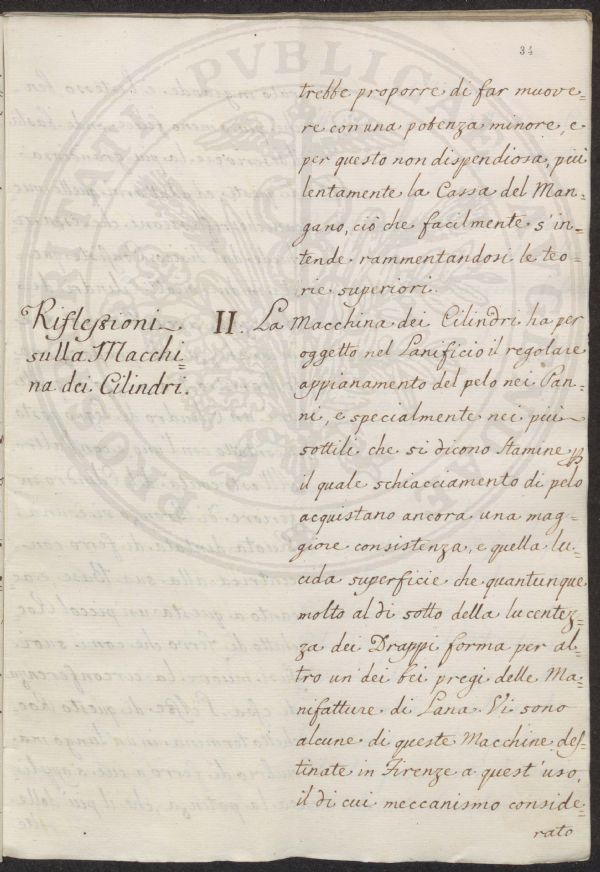 34
trebbe proporre di far muove=
re con una potenza minore, e
per questo non dispendiosa, più
lentamente la Cassa del Man=
gano, ciò che facilmente s'in=
tende rammentandosi le teo=
rie superiori.
Riflessioni
sulla Macchi=
na dei Cilindri.
II. La Macchina dei Cilindri ha per
oggetto nel Lanificio il regolare
appianamento del pelo nei Pan=
ni, e specialmente nei più
sottili che si dicono Stamine
il quale schiacciamento di pelo
acquistano ancora una mag=
giore consistenza, e quella lu=
cida superficie che quantunque
molto al di sotto della lucentez=
za dei Drappi forma per al=
tro un dei bei pregi delle Ma=
nifatture di Lana. Vi sono
alcune di queste Macchine des=
tinate in Firenze a quest'uso,
il di cui meccanismo conside=
rato